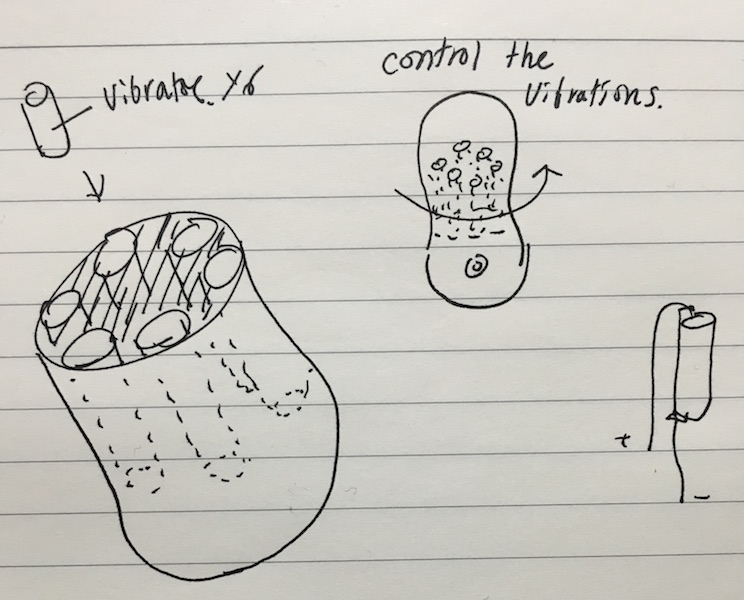 vibrator. x6
control the
vibrations.
+
-